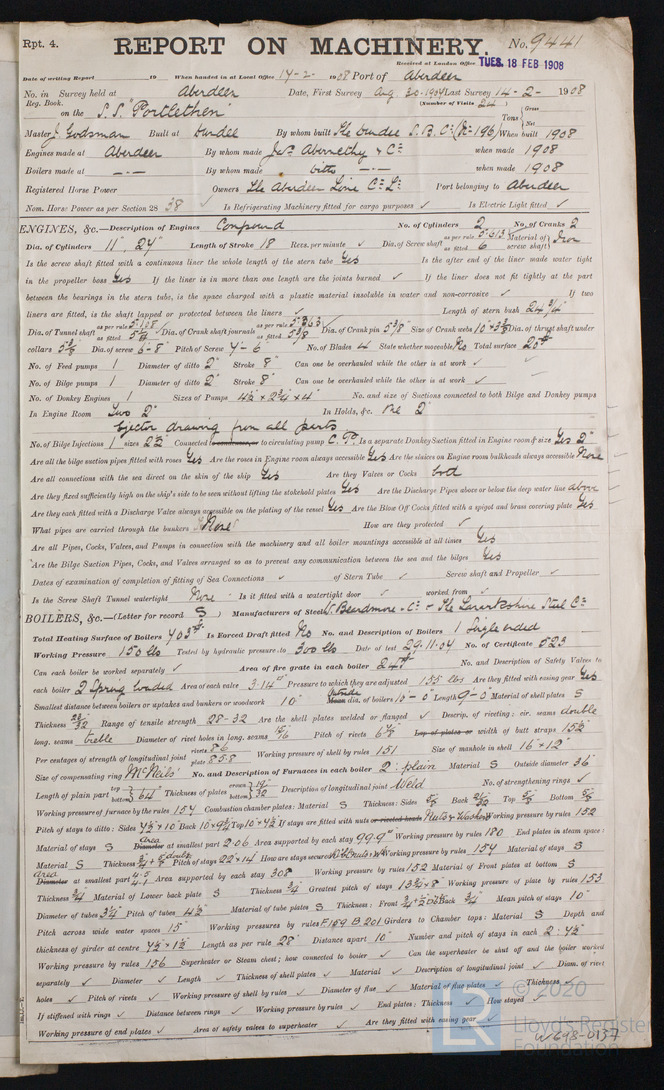 Rpt. 4. REPORT ON MACHINERY. No. 9441
Received at London Office TUES. 18 FEB 1908
Date of writing Report 19 When handed in at Local Office 17-2- 1908 Port of Aberdeen
No. in Survey held at Aberdeen Date, First Survey Aug 20-1907 Last Survey 14-2- 1908
Reg. Book. (Number of Visits 24)
on the S.S. "Portlethen" Tons { Gross Net
Master J. Godsman Built at Dundee By whom built The Dundee S.B. Co (No 196) When built 1908
Engines made at Aberdeen By whom made Jas Abernethy & Co when made 1908
Boilers made at -.- By whom made ditto -.- when made 1908
Registered Horse Power Owners The Aberdeen Lime Co Ld Port belonging to Aberdeen
Nom. Horse Power as per Section 28 38 Is Refrigerating Machinery fitted for cargo purposes ✓ Is Electric Light fitted ✓
ENGINES, &c.—Description of Engines Compound No. of Cylinders 2 No. of Cranks 2
Dia. of Cylinders 11" 24" Length of Stroke 18 Revs. per minute ✓ Dia. of Screw shaft as per rule as fitted 6 Material of screw shaft Iron
Is the screw shaft fitted with a continuous liner the whole length of the stern tube Yes Is the after end of the liner made water tight
in the propeller boss Yes If the liner is in more than one length are the joints burned ✓ If the liner does not fit tightly at the part
between the bearings in the stern tube, is the space charged with a plastic material insoluble in water and non-corrosive ✓ If two
liners are fitted, is the shaft lapped or protected between the liners ✓ Length of stern bush 24 3/4"
Dia. of Tunnel shaft as per rule as fitted Dia. of Crank shaft journals as per rule as fitted 5 3/8 Dia. of Crank pin 5 3/8" Size of Crank webs 10" × 3 3/8 Dia. of thrust shaft under
collars 5 3/8 Dia. of screw 6'-8" Pitch of Screw 7'-6" No. of Blades 4 State whether moveable No Total surface 20 ft
No. of Feed pumps 1 Diameter of ditto 2" Stroke 8" Can one be overhauled while the other is at work ✓
No. of Bilge pumps 1 Diameter of ditto 2" Stroke 8" Can one be overhauled while the other is at work ✓
No. of Donkey Engines 1 Sizes of Pumps 4 1/2 × 2 3/4 × 4" No. and size of Suctions connected to both Bilge and Donkey pumps
In Engine Room Two 2" In Holds, &c. One 2"
Ejector drawing from all parts
No. of Bilge Injections 1 sizes 2 1/2" Connected to condenser, or to circulating pump C.P. Is a separate Donkey Suction fitted in Engine room & size Yes 2"
Are all the bilge suction pipes fitted with roses Yes Are the roses in Engine room always accessible Yes Are the sluices on Engine room bulkheads always accessible None
Are all connections with the sea direct on the skin of the ship Yes Are they Valves or Cocks both
Are they fixed sufficiently high on the ship's side to be seen without lifting the stokehold plates Yes Are the Discharge Pipes above or below the deep water line above
Are they each fitted with a Discharge Valve always accessible on the plating of the vessel Yes Are the Blow Off Cocks fitted with a spigot and brass covering plate Yes
What pipes are carried through the bunkers None How are they protected ✓
Are all Pipes, Cocks, Valves, and Pumps in connection with the machinery and all boiler mountings accessible at all times Yes
Are the Bilge Suction Pipes, Cocks, and Valves arranged so as to prevent any communication between the sea and the bilges Yes
Dates of examination of completion of fitting of Sea Connections ✓ of Stern Tube ✓ Screw shaft and Propeller ✓
Is the Screw Shaft Tunnel watertight None Is it fitted with a watertight door ✓ worked from ✓
BOILERS, &c.—(Letter for record S) Manufacturers of Steel W. Beardmore & Co & The Lanarkshire Steel Co
Total Heating Surface of Boilers 703 ft Is Forced Draft fitted No No. and Description of Boilers 1 Single ended
Working Pressure 150 lbs Tested by hydraulic pressure to 300 lbs Date of test 29.11.07 No. of Certificate 523
Can each boiler be worked separately ✓ Area of fire grate in each boiler 24 ft No. and Description of Safety Valves to
each boiler 2 Spring loaded Area of each valve 3.14" Pressure to which they are adjusted 155 lbs Are they fitted with easing gear Yes
Smallest distance between boilers or uptakes and bunkers or woodwork 10" Outside Mean dia. of boilers 10'-0" Length 9'-0 Material of shell plates S
Thickness 23/32 Range of tensile strength 28-32 Are the shell plates welded or flanged ✓ Descrip. of riveting: cir. seams double
long. seams treble Diameter of rivet holes in long. seams 15/16 Pitch of rivets Lap of plates or width of butt straps 15 1/2"
Per centages of strength of longitudinal joint rivets 86 plate 85.8 Working pressure of shell by rules 151 Size of manhole in shell 16" × 12"
Size of compensating ring McNeils' No. and Description of Furnaces in each boiler 2: plain Material S Outside diameter 36"
Length of plain part top bottom 64" Thickness of plates crown bottom 19/32 Description of longitudinal joint Weld No. of strengthening rings ✓
Working pressure of furnace by the rules 154 Combustion chamber plates: Material S Thickness: Sides 5/8 Back 21/32 Top 5/8 Bottom 5/8
Pitch of stays to ditto: Sides 7 1/2 × 10 Back 10 × 9 1/2 Top 10 × 7 1/2 If stays are fitted with nuts or riveted heads Nuts & Washers Working pressure by rules 152
Material of stays S Area Diameter at smallest part 2.06 Area supported by each stay 99.9" Working pressure by rules 180 End plates in steam space:
Material S Thickness Pitch of stays 22 × 14 How are stays secured Working pressure by rules 154 Material of stays S
Area Diameter at smallest part Area supported by each stay 308 Working pressure by rules 152 Material of Front plates at bottom S
Thickness 3/4 Material of Lower back plate S Thickness 3/4 Greatest pitch of stays 13 3/4 × 8" Working pressure of plate by rules 153
Diameter of tubes 3 1/4 Pitch of tubes 4 1/2 Material of tube plates S Thickness: Front Back 3/4 Mean pitch of stays 10"
Pitch across wide water spaces 15" Working pressures by rules F 169 B 201 Girders to Chamber tops: Material S Depth and
thickness of girder at centre 7 1/2 × 1 1/2 Length as per rule 28" Distance apart 10" Number and pitch of stays in each 2: 7 1/2
Working pressure by rules 156 Superheater or Steam chest; how connected to boiler ✓ Can the superheater be shut off and the boiler worked
separately ✓ Diameter ✓ Length ✓ Thickness of shell plates ✓ Material ✓ Description of longitudinal joint ✓ Diam. of rivet
holes ✓ Pitch of rivets ✓ Working pressure of shell by rules ✓ Diameter of flue ✓ Material of flue plates ✓ Thickness
If stiffened with rings ✓ Distance between rings ✓ Working pressure by rules ✓ End plates: Thickness ✓ How stayed ✓
Working pressure of end plates ✓ Area of safety valves to superheater ✓ Are they fitted with easing gear ✓
© 2020
Lloyd's Register
Foundation
W698-0137